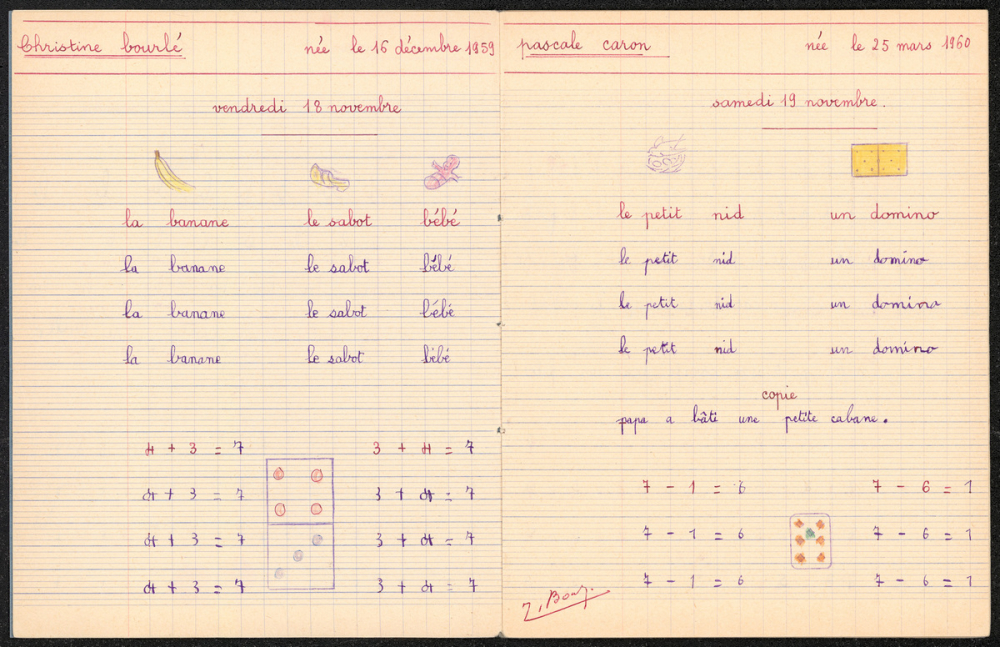 Christine bourlé née le 16 décembre 1959
vendredi 18 novembre
la banane le sabot bébé
la banane le sabot bébé
la banane le sabot bébé
la banane le sabot bébé
4 + 3 = 7 3 + 4 = 7
4 + 3 = 7 3 + 4 = 7
4 + 3 = 7 3 + 4 = 7
4 + 3 = 7 3 + 4 = 7
pascale caron née le 25 mars 1960
samedi 19 novembre.
le petit nid un domino
le petit nid un domino
le petit nid un domino
le petit nid un domino
copie
papa a bâti une petite cabane.
7 - 1 = 6 7 - 6 = 1
7 - 1 = 6 7 - 6 = 1
7 - 1 = 6 7 - 6 = 1